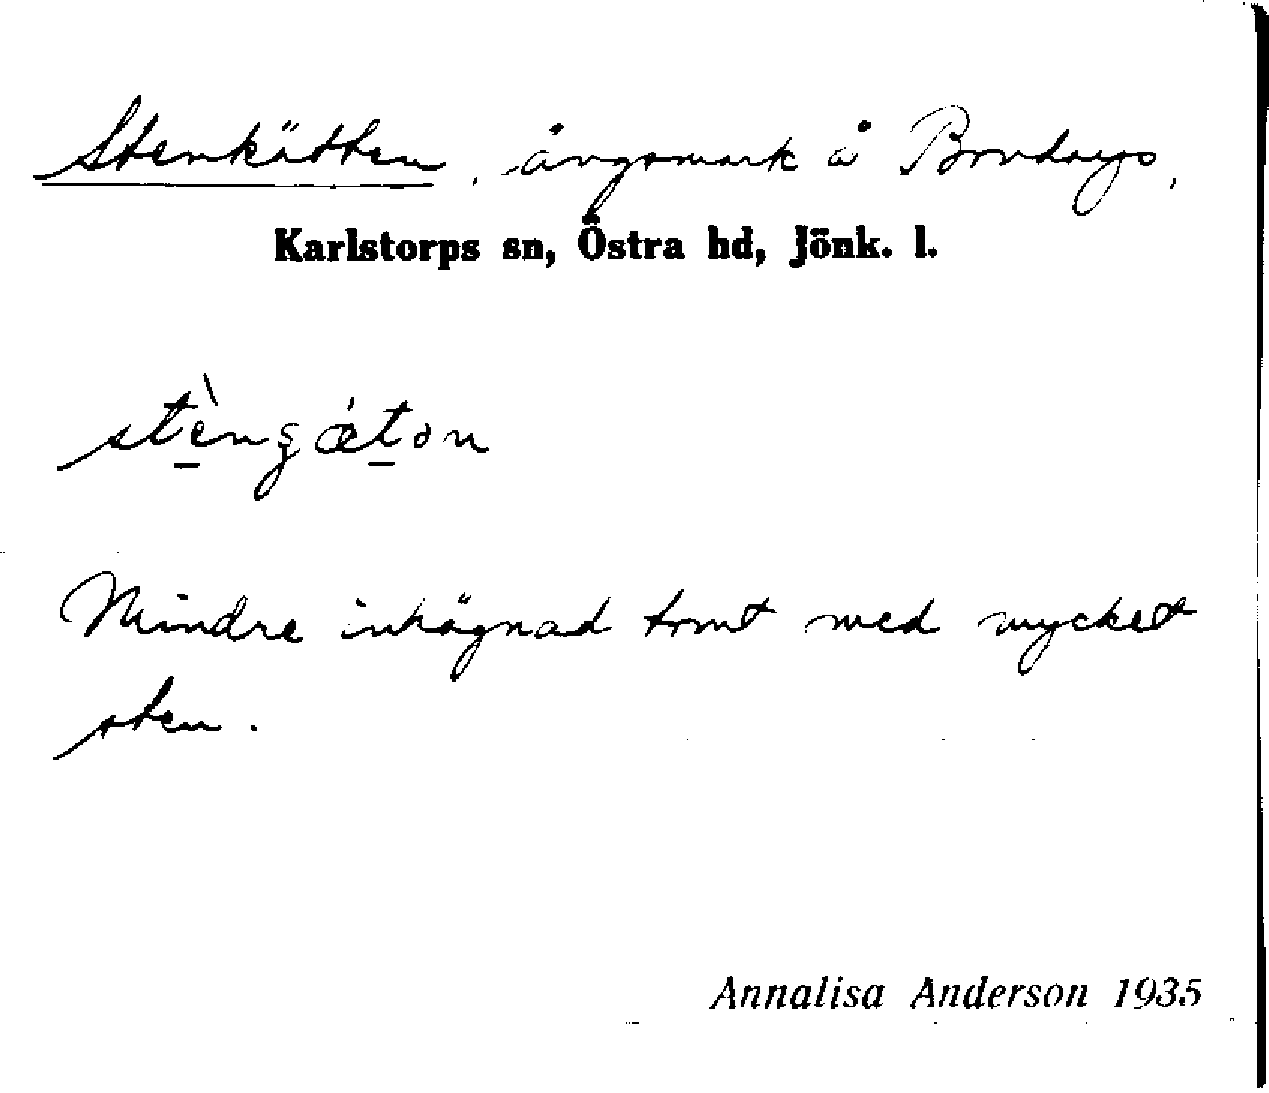 Stenkätten, ängsmark å
Karlstorps sn, Östra hd, Jönk. l.
Mindre inhägnad tomt med mycket
sten.
Annalisa Anderson 1935